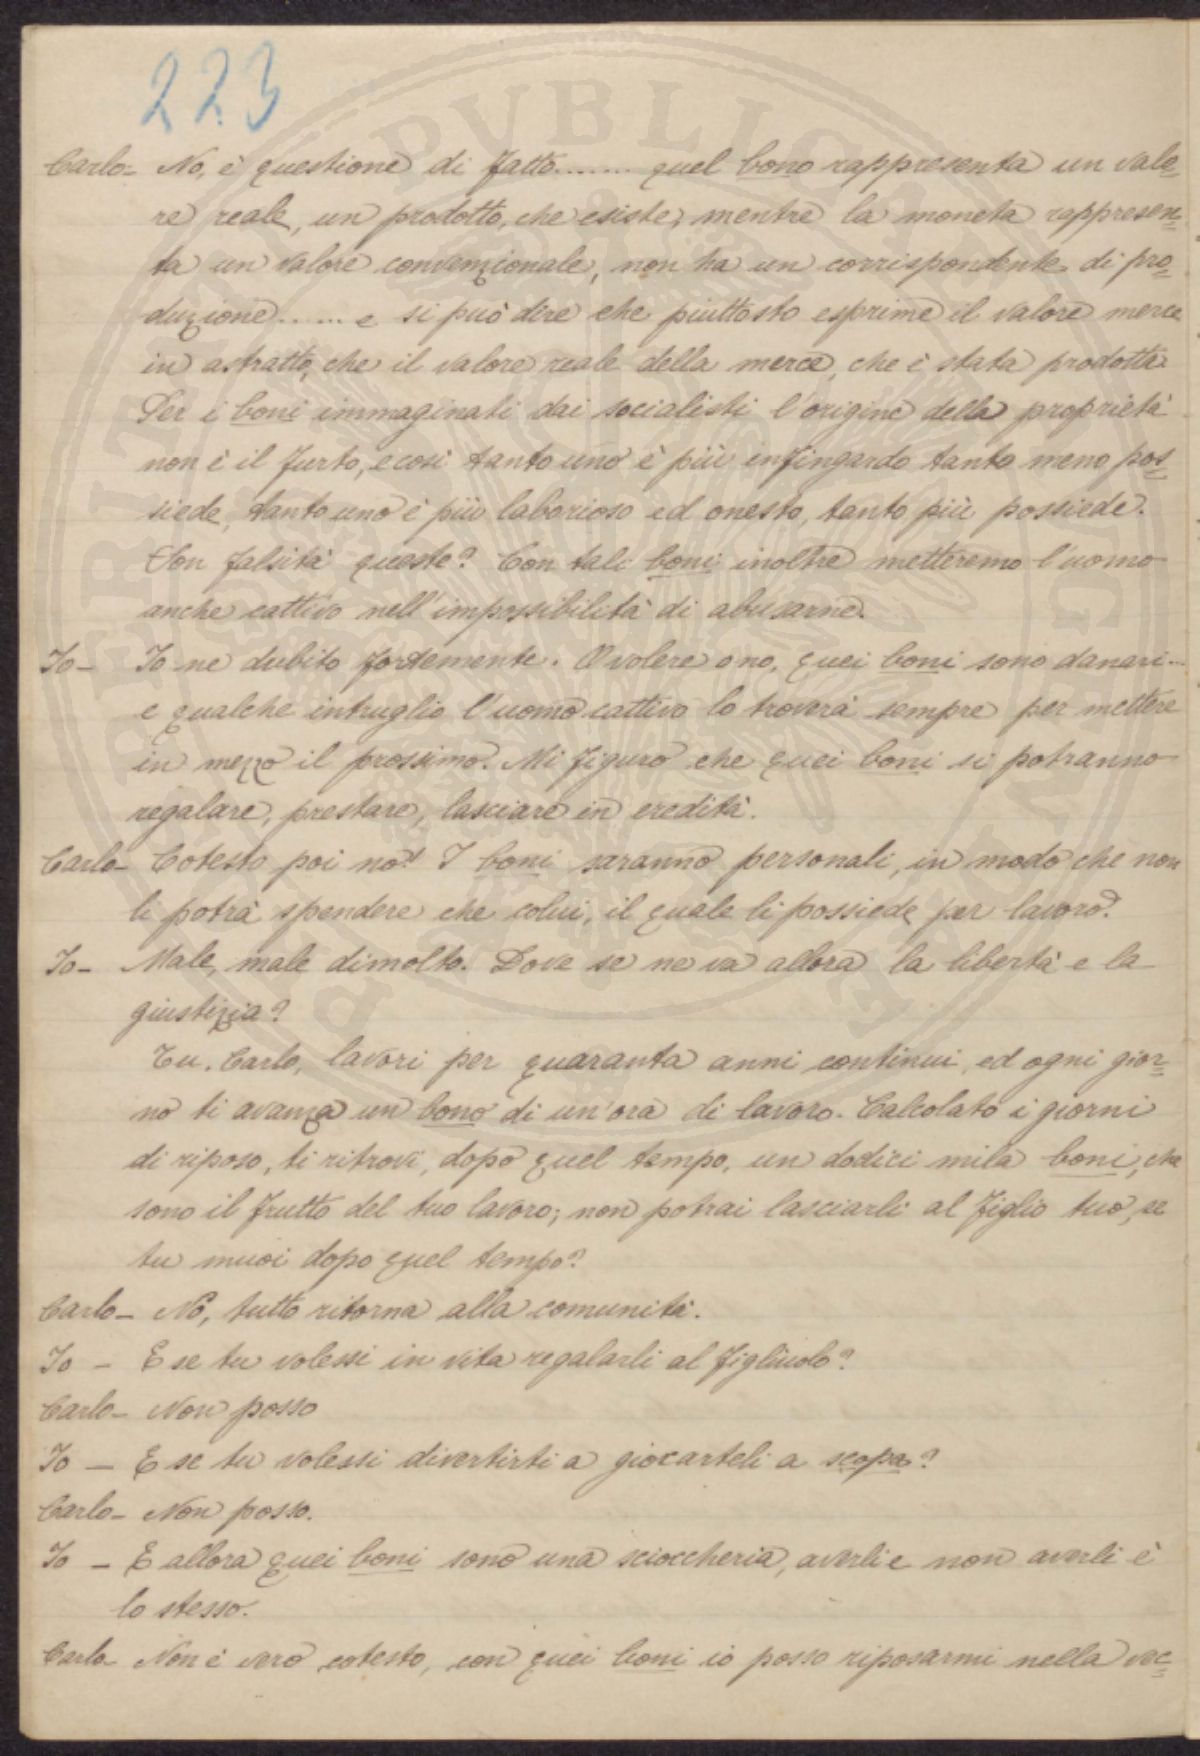 223
Carlo- No, è questione di fatto........ quel bono rappresenta un valo=
re reale, un prodotto, che esiste, mentre la moneta rappresen=
ta un valore convenzionale, non ha un corrispondente di pro=
duzione...... e si può dire che piuttosto esprime il valore merce
in astratto, che il valore reale della merce, che è stata prodotta.
Per i boni immaginati dai socialisti l'origine della proprietà
non è il furto, e così tanto uno è più infingardo tanto meno pos=
siede, tanto uno è più laborioso ed onesto, tanto più possiede.
Son falsità queste? Con tali boni inoltre metteremo l'uomo
anche cattivo nell'impossibilità di abusarne.
Io- Io ne dubito fortemente. O volere o no, quei boni sono danari...
e qualche intruglio l'uomo cattivo lo troverà sempre per mettere
in mezzo il prossimo. Mi figuro che quei boni si potranno
regalare, prestare, lasciare in eredità.
Carlo- Cotesto poi no! I boni saranno personali, in modo che non
li potrà spendere che colui, il quale li possiede per lavoro.
Io- Male, male dimolto. Dove se ne va allora la libertà e la
giustizia?
Tu, Carlo, lavori per quaranta anni continui, ed ogni gior=
no ti avanza un bono di un'ora di lavoro. Calcolato i giorni
di riposo, ti ritrovi, dopo quel tempo, un dodici mila boni, che
sono il frutto del tuo lavoro; non potrai lasciarli al figlio tuo, se
tu muoi dopo quel tempo?
Carlo- No, tutto ritorna alla comunità.
Io - E se tu volessi in vita regalarli al figliuolo?
Carlo- Non posso
Io - E se tu volessi divertirti a giocarteli a scopa?
Carlo- Non posso.
Io - E allora quei boni sono una scioccheria, averli e non averli è
lo stesso.
Carlo- Non è vero cotesto, con quei boni io posso riposarmi nella vec=